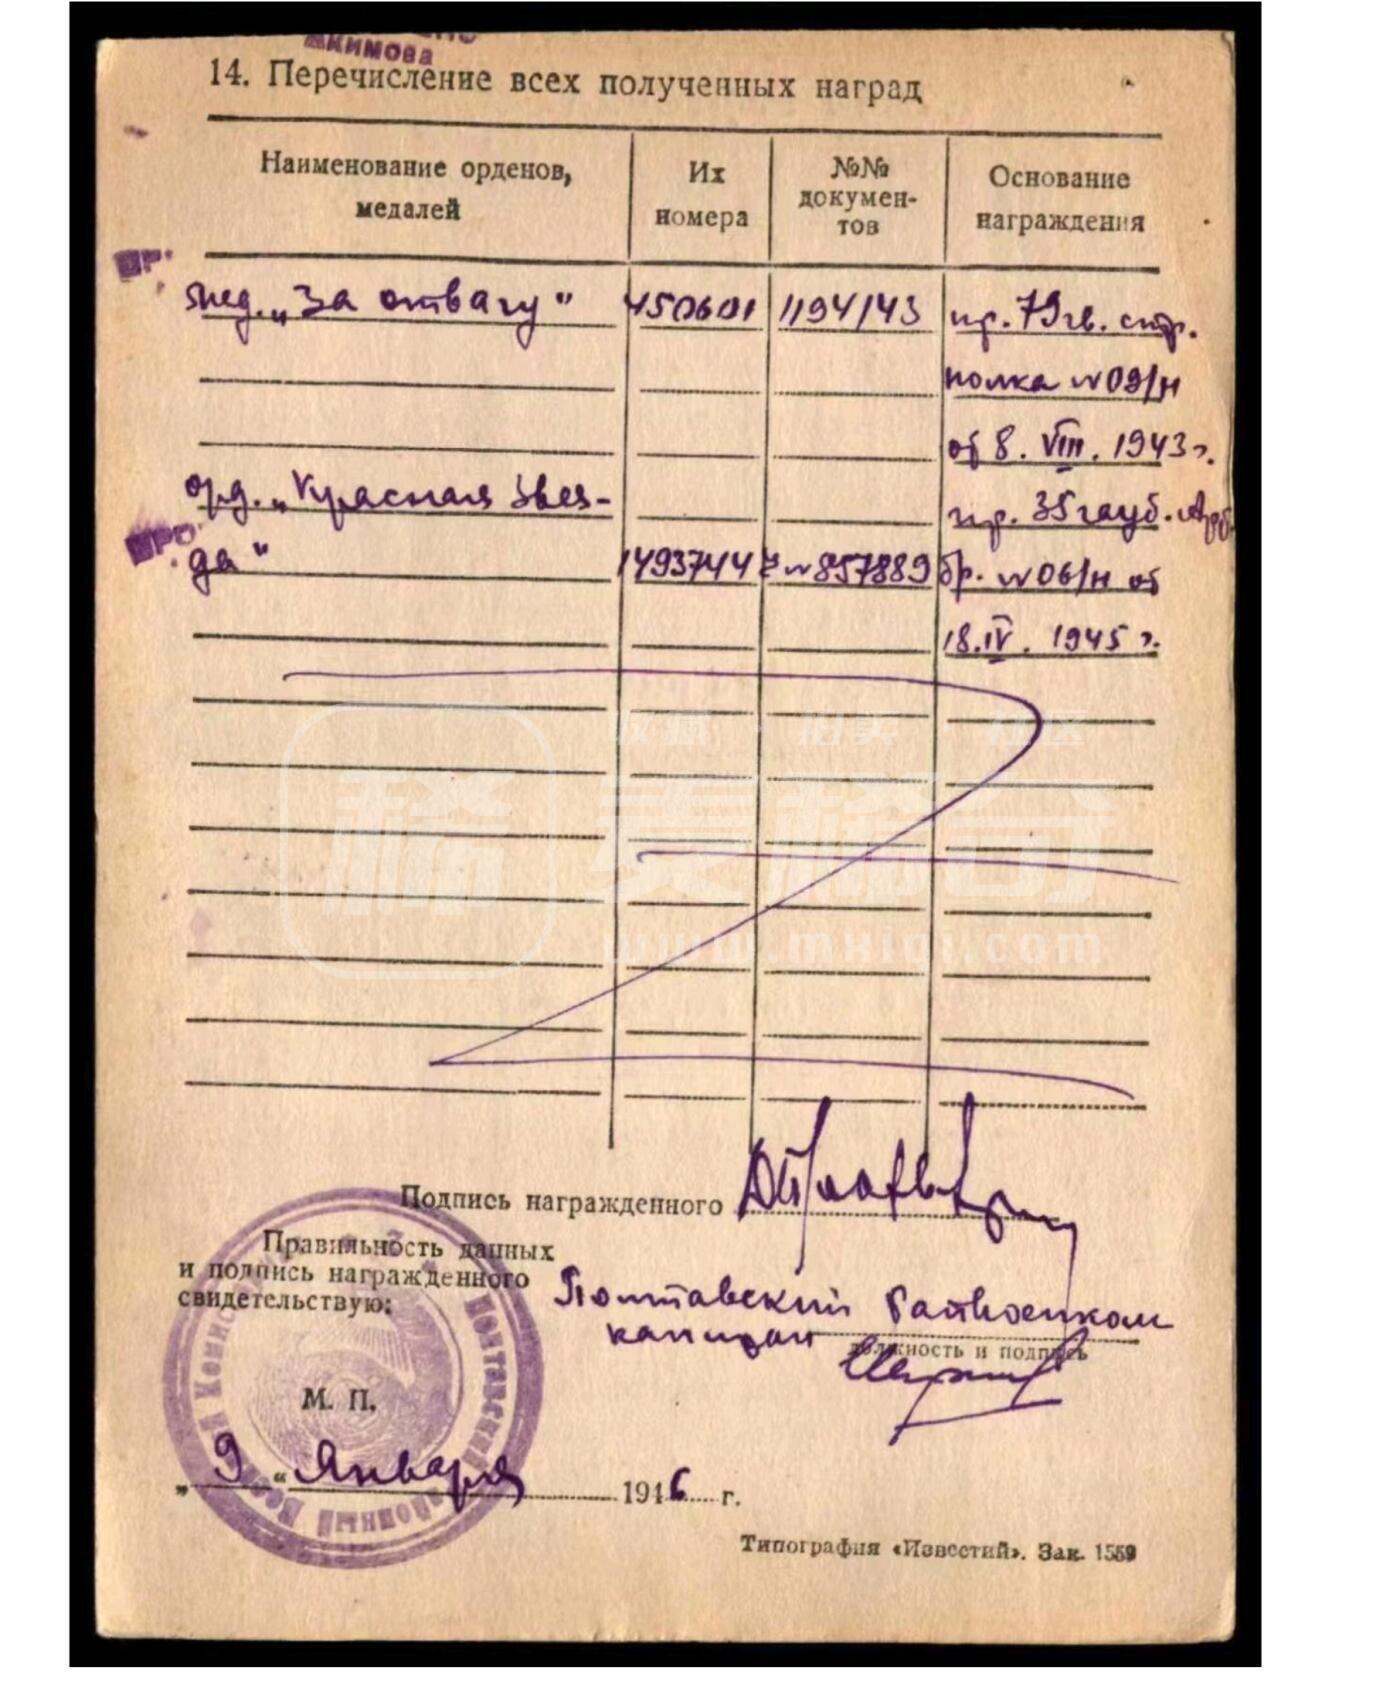 Якимова
14. Перечисление всех полученных наград
Наименование орденов, медалей
Их номера
№№ докумен-тов
Основание награждения
мед. „За отвагу“ 450601 1194/43 пр. 79 гв. стр.
полка №09/н
от 8. VIII. 1943 г.
орд. „Красная Звез- пр. 35 гауб. Арт.
да“ 1493744 №857889 бр. №06/н от
18. IV. 1945 г.
美稀奇
www.mxiqi.com
Подпись награжденного
Правильность данных
и подпись награжденного
свидетельствую:
Полтавский Райвоенком
капитан
должность и подпись
М. П.
„9“ Января 1946 г.
Типография «Известий». Зак. 1559